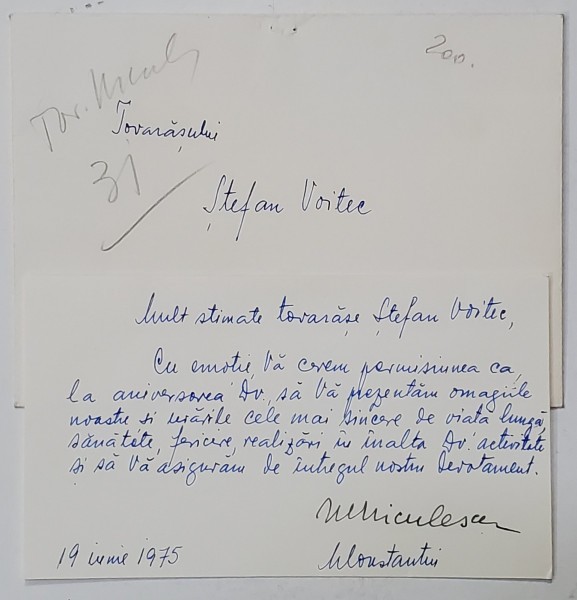 200.
Tov.
31
Tovarășului
Ștefan Voitec
Mult stimate tovarășe Ștefan Voitec,
Cu emoție, Vă cerem permisiunea ca,
la aniversarea Dv., să Vă prezentăm omagiile
noastre și urările cele mai sincere de viață lungă,
sănătate, fericire, realizări în înalta Dv. activitate
și să Vă asigurăm de întregul nostru devotament.
Niculescu
19 iunie 1975
Constantin